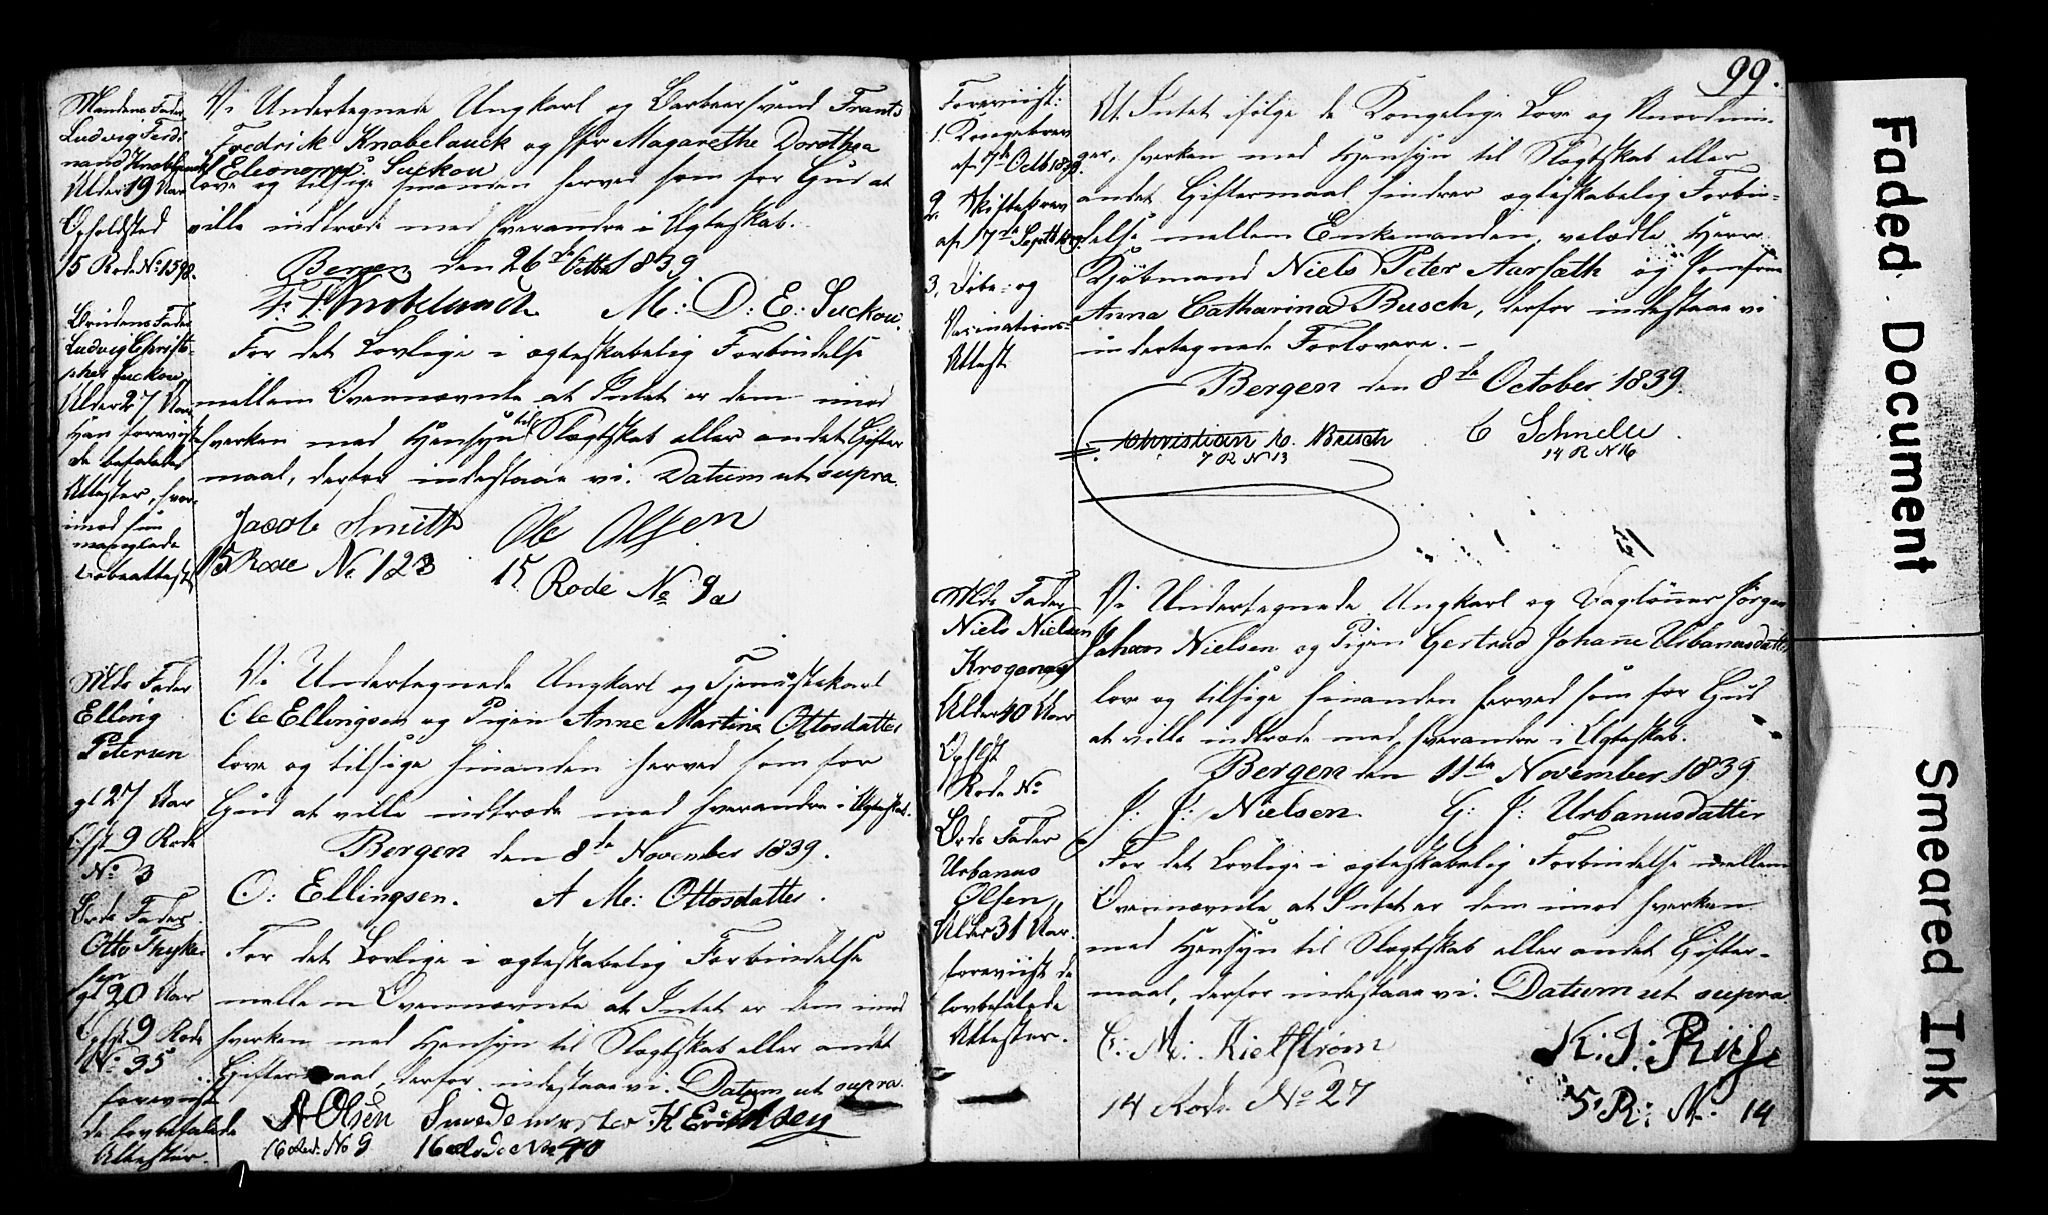 Mandens Fader
Ludvig Ferdi-
nand Knobelauck
Alder 19 Aar
Opholdsted
5 Rode No 159B.
Brudens Fader
Ludvig Christo-
pher Suckou
Alder 27 Aar
Han foreviste
de befalede
Attester, hvor-
imod hun
manglede
Døbeattest
Vi Undertegnede Ungkarl og Barbeersvend Frants
Fredrick Knobelauck og Jfr Magarethe Dorothea
Eleonora Suckou
love og tilsige hinanden herved som for Gud at
ville indtræde med hverandre i Ægteskab.
Bergen den 26de Octbr 1839
F. F. Knobelauch M: D: E: Suckou.
For det Lovlige i ægteskabelig Forbindelse
mellem Ovennævnte at Intet er dem imod
hverken med Hensyn til Slægtskab eller andet Gifter
maal, derfor indestaae vi. Datum ut supra.
Jacob Smith Ole Olsen
15 Rode No 123 15 Rode No 9a
Mds Fader
Elling
Petersen
gl 27 Aar
Ophst 9 Rode
No 3
Brds Fader
Otto Thyke
sen
gl 20 Aar
Ophst 9 Rode
No 35
foreviist
de lovbefalede
Attester.
Vi Undertegnede Ungkarl og Tjenistekarl
Ole Ellingsen og Pigen Anne Martina Ottosdatter
love og tilsige hinanden herved som for
Gud at ville indtræde med hverandre i Ægteskab.
Bergen den 8de November 1839.
O: Ellingsen. A M: Ottosdatter.
For det Lovlige i ægteskabelig Forbindelse
mellem Ovennævnte at Intet er dem imod
hverken med Hensyn til Slægtskab eller andet
Giftermaal, derfor indestaae vi. Datum ut supra.
A Olsen Smedemester H Erichsen
16 Rode No 9 16 Rode No 40
99.
Foreviist:
1. Kongebrev
af 7de Octb 1839.
2. Skiftebrev
af 17de Septb 1839
3. Døbe- og
Vacinations-
Attest
At Intet ifølge de Kongelige Love og Anordnin-
ger, hverken med Hensyn til Slægtskab eller
andet Giftermaal hindrer ægteskabelig Forbin-
delse mellem Enkemanden, velædle Herre
Kjøbmand Niels Peter Aarsæth og Jomfrue
Anna Catharina Busch, derfor indestaae vi
undertegnede Forlovere. —
Bergen den 8de October 1839.
Christian C. Busch C Schnelle.
7 R N 13 14 R N 16
Mds Fader
Niels Nielsen
Krogenæs
Alder 40 Aar
Ophst
Rode No
Brds Fader
Urbanus
Olsen
Alder 31 Aar.
foreviist de
lovbefalede
Attester.
Vi Undertegnede Ungkarl og Dagløner Jørgen
Johan Nielsen og Pigen Gertrud Johane Urbanusdatter
love og tilsige hinanden herved som for Gud
at ville indtræde med hverandre i Ægteskab.
Bergen den 11te November 1839
J: J: Nielsen. G: J: Urbanusdatter
For det Lovlige i ægteskabelig Forbindelse mellem
Ovennævnte at Intet er dem imod hverken
med Hensyn til Slægtskab eller andet Gifter-
maal, derfor indestaae vi. Datum ut supra
C: M: Kielstrøm K: J: Riise
14 Rode No 27 5 R: N: 14
Faded Document
Smeared Ink